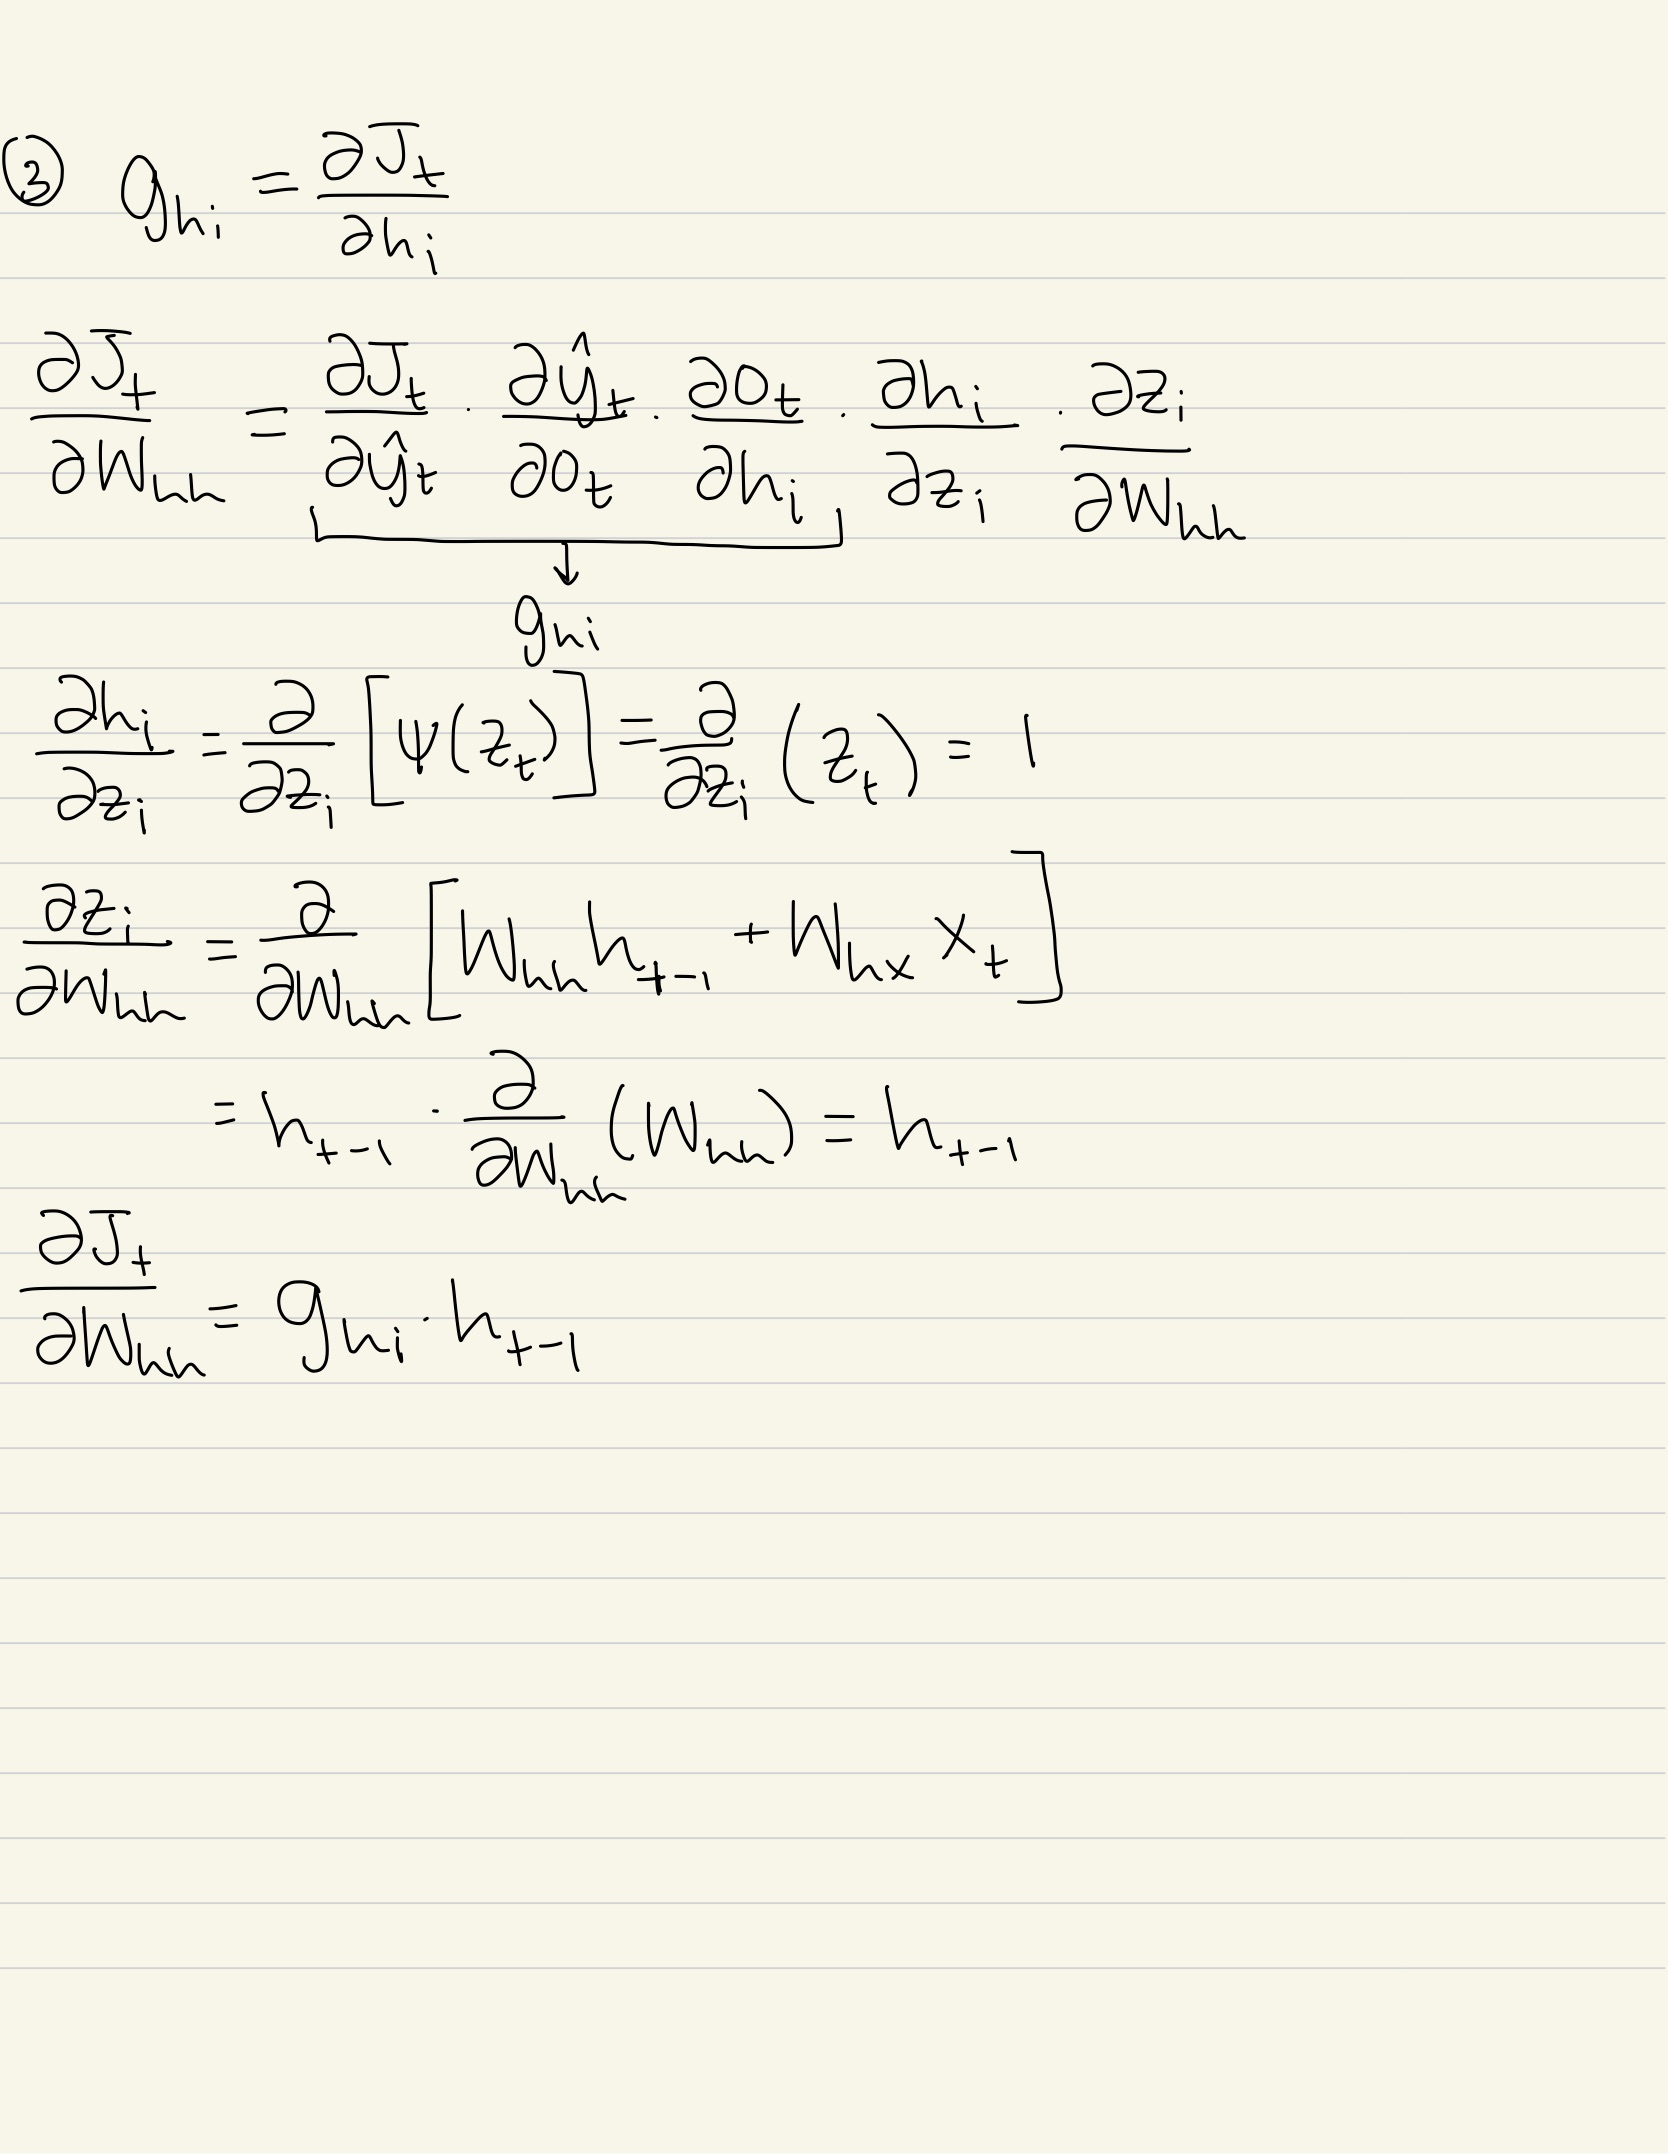 ② g_{h_i} = ∂J_t / ∂h_i
∂J_t / ∂W_{hh} = ∂J_t / ∂ŷ_t · ∂ŷ_t / ∂o_t · ∂o_t / ∂h_i · ∂h_i / ∂z_i · ∂z_i / ∂W_{hh}
↓
g_{h_i}
∂h_i / ∂z_i = ∂ / ∂z_i [ψ(z_t)] = ∂ / ∂z_i (z_t) = 1
∂z_i / ∂W_{hh} = ∂ / ∂W_{hh} [W_{hh} h_{t-1} + W_{hx} x_t]
= h_{t-1} · ∂ / ∂W_{hh} (W_{hh}) = h_{t-1}
∂J_t / ∂W_{hh} = g_{h_i} · h_{t-1}